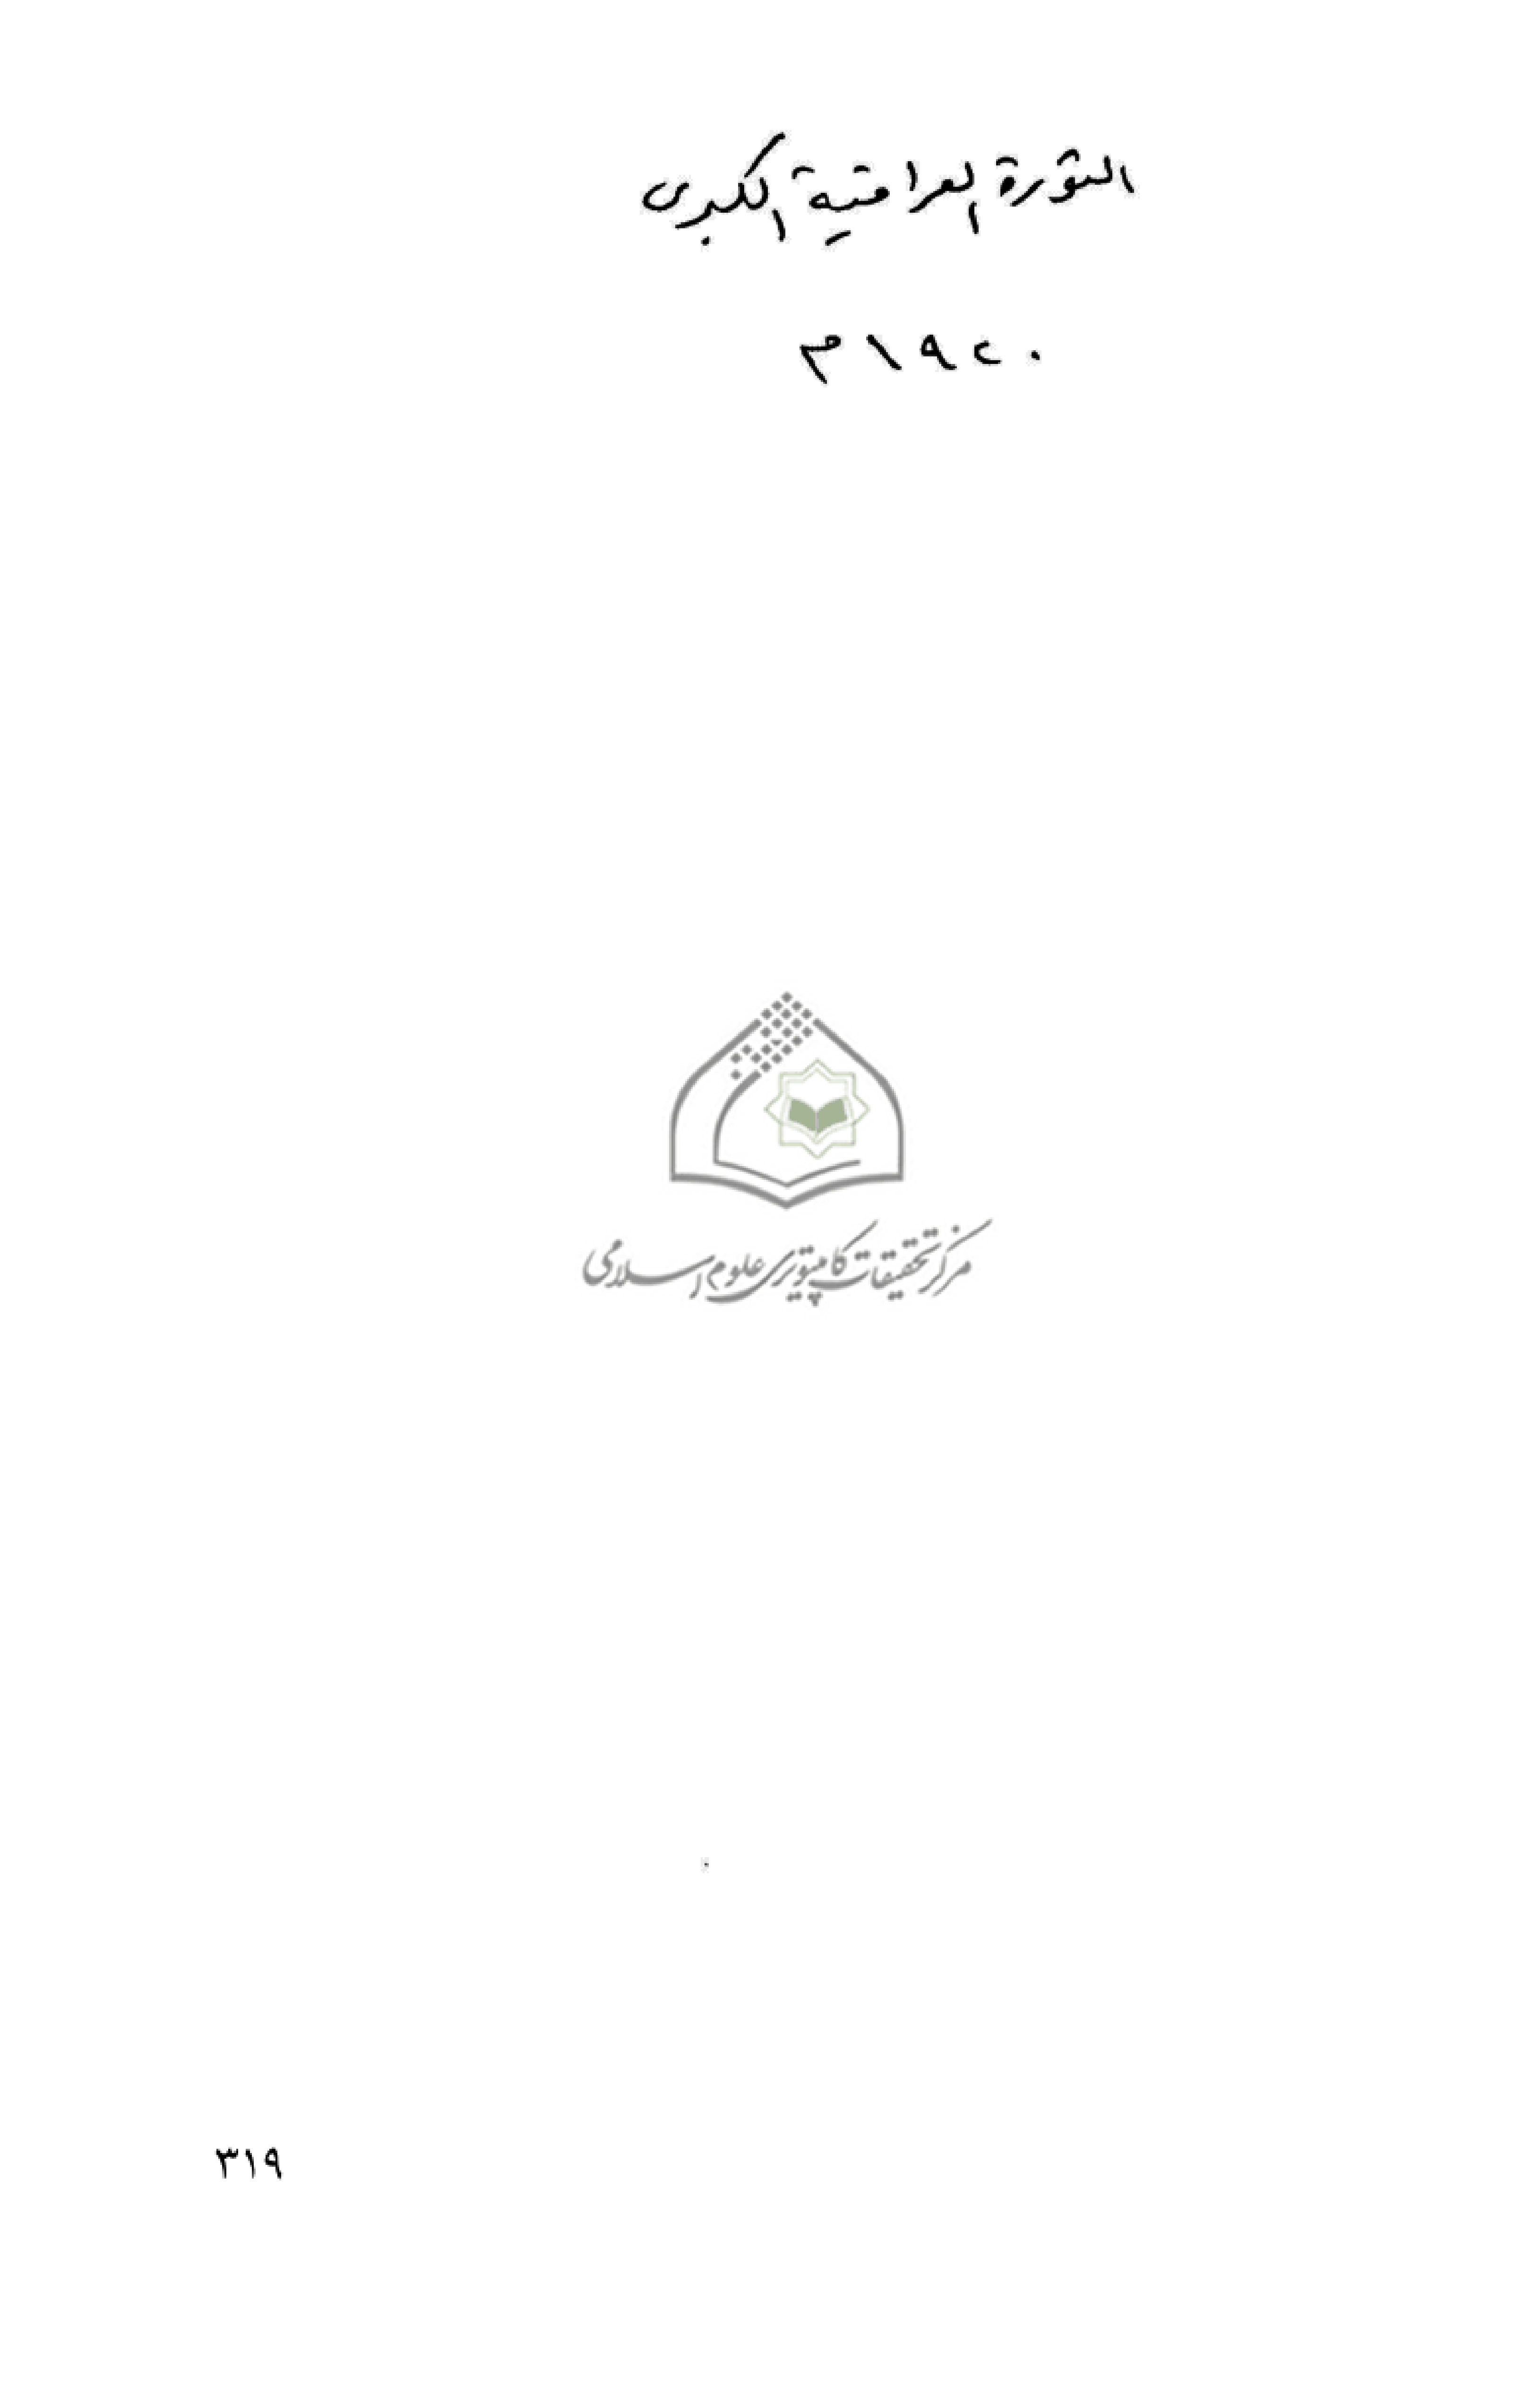 الثورة العراقية الكبرى
١٩٢٠ م
مرکز تحقیقات کامپیوتری علوم اسلامی
٣١٩